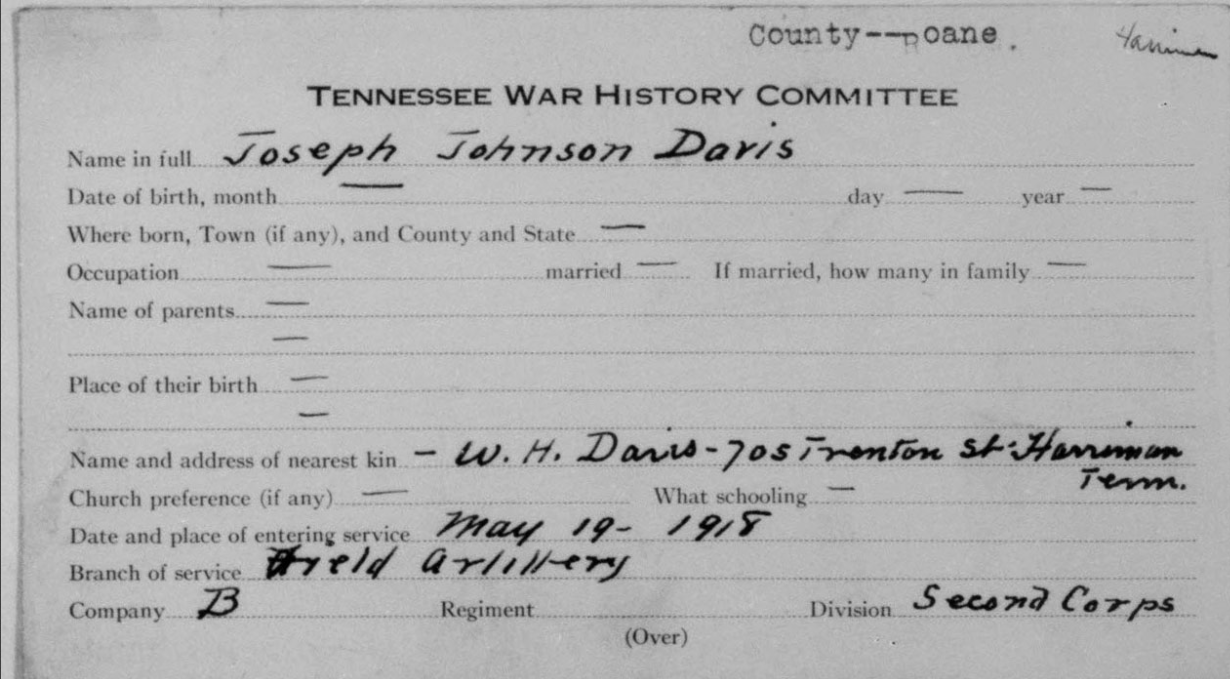 County--Roane. Harriman
TENNESSEE WAR HISTORY COMMITTEE
Name in full Joseph Johnson Davis
Date of birth, month — day — year —
Where born, Town (if any), and County and State —
Occupation — married — If married, how many in family —
Name of parents —
—
Place of their birth —
—
Name and address of nearest kin - W. H. Davis - 705 Trenton St. Harriman
Tenn.
Church preference (if any) — What schooling —
Date and place of entering service May 19 - 1918
Branch of service Field Artillery
Company B Regiment Division Second Corps
(Over)